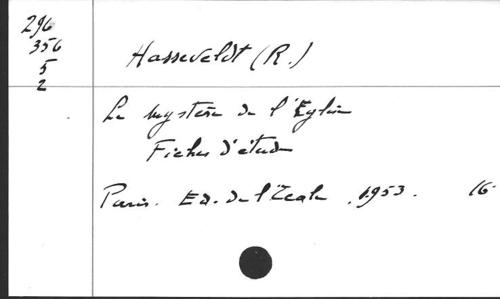 296
356
5
2
Hasseveldt (R.)
Le mystère de l'Eglise
Fiches d'étude
Paris. Ed. de l'Ecole, 1953. 16